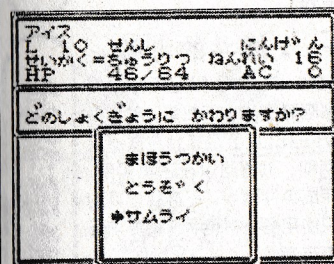 アイス
L 10 せんし にんげん
せいかく=ちゅうりつ ねんれい 16
HP 46/64 AC 0
どのしょくぎょうに かわりますか?
まほうつかい
とうぞく
サムライ